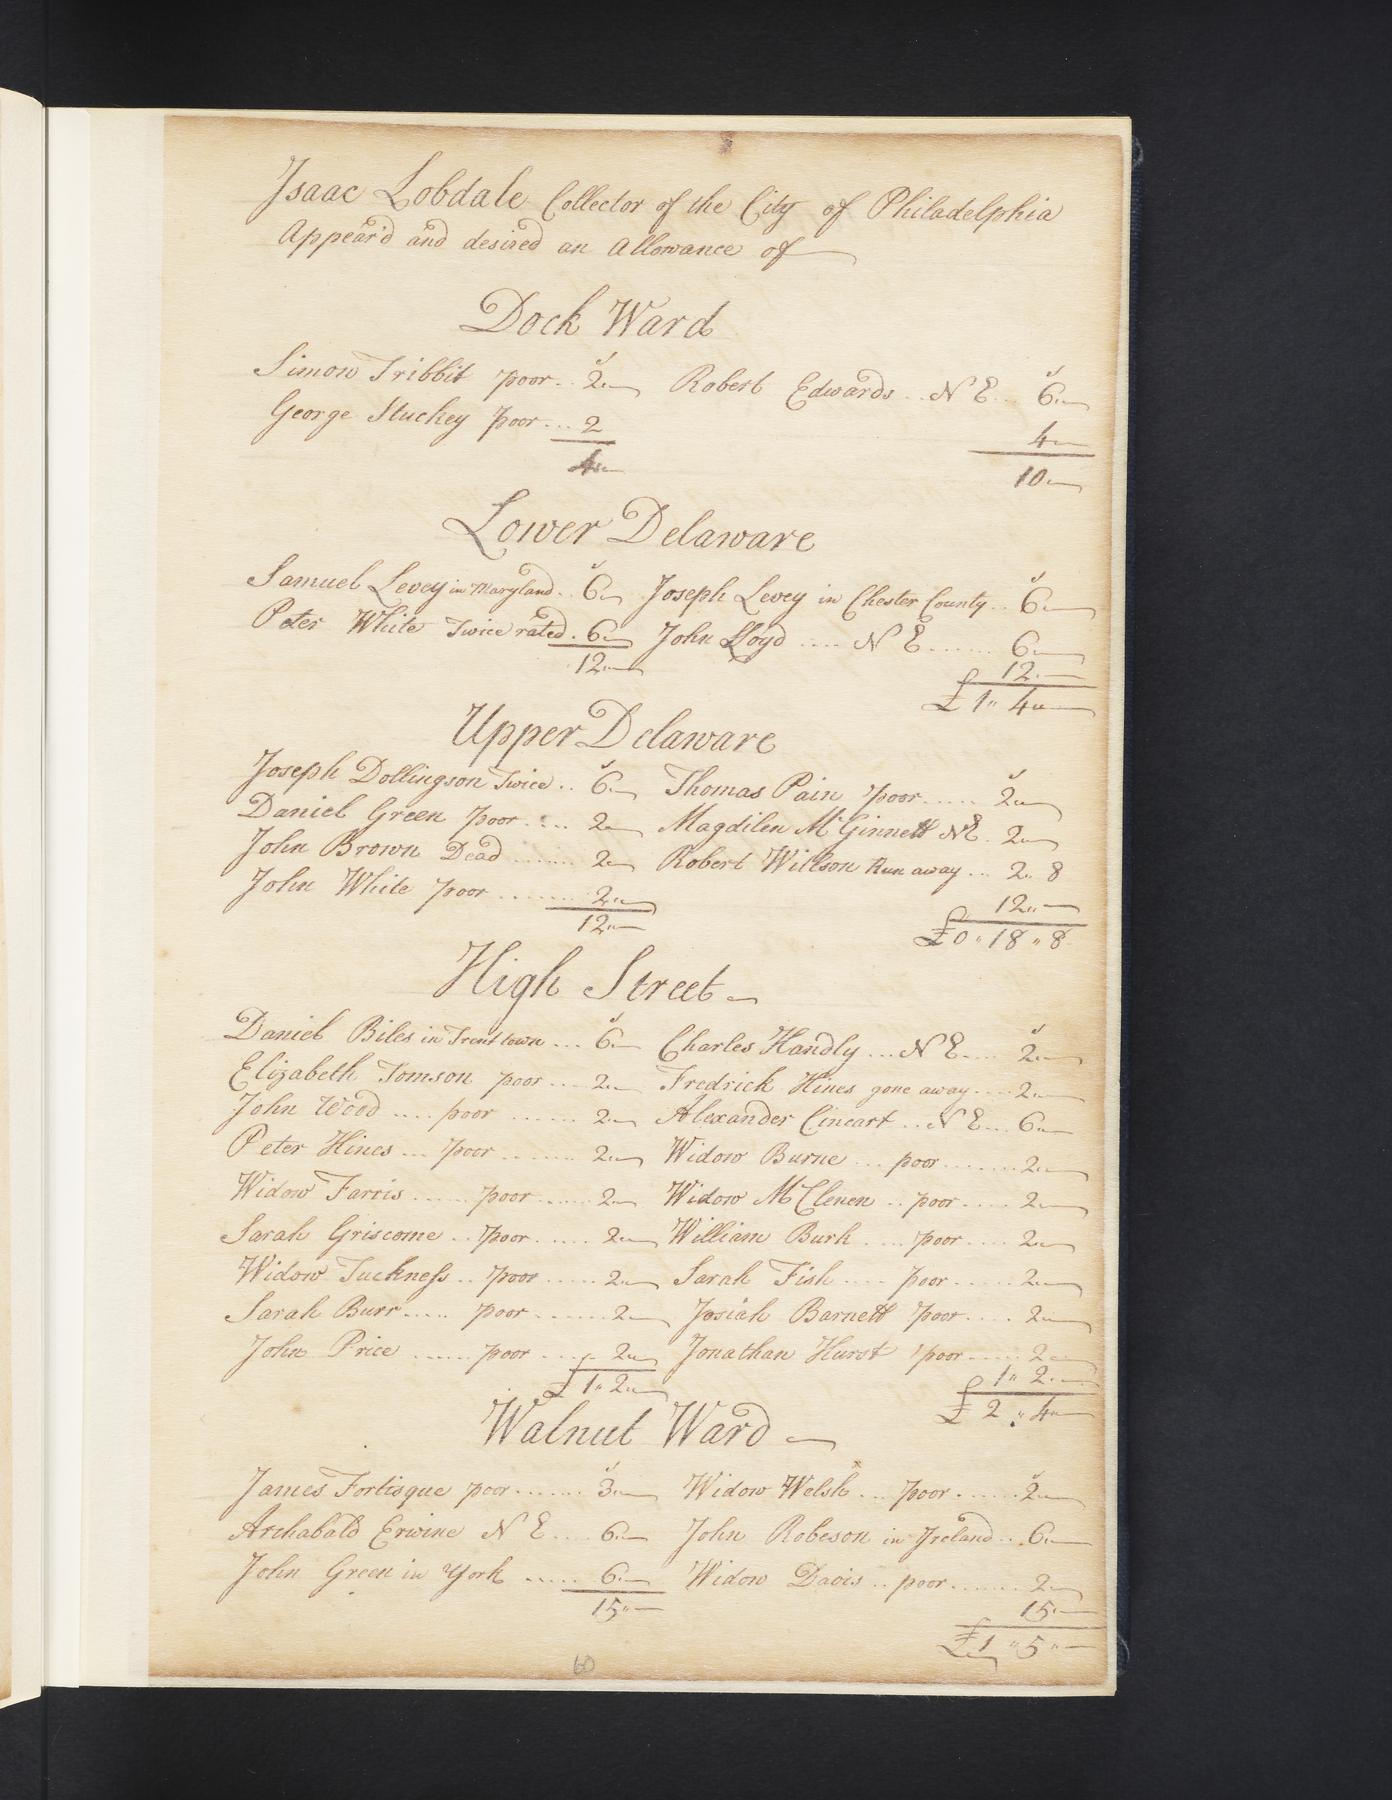 Isaac Lobdale Collector of the City of Philadelphia
Appear'd and desired an Allowance of
Dock Ward
Simon Tribbit poor .. 2 Robert Edwards .. N E ... 6
George Stuckey poor ... 2
4
4
10
Lower Delaware
Samuel Levey in Maryland .. 6 Joseph Levey in Chester County .. 6
Peter White Twice rated . 6 John Lloyd .... N E ...... 6
12
12
£ 1 " 4
Upper Delaware
Joseph Dollingson Twice .. 6 Thomas Pain poor ..... 2
Daniel Green poor .... 2 Magdilen McGinnett NE . 2
John Brown Dead ...... 2 Robert Willson Run away ... 2 " 8
John White poor ....... 2
12
12
£ 0 " 18 " 8
High Street
Daniel Biles in Trent town ... 6 Charles Handly ... N E .... 2
Elizabeth Tomson poor ... 2 Fredrick Hines gone away .... 2
John Wood .... poor ...... 2 Alexander Lineart .. N E ... 6
Peter Hines ... poor ....... 2 Widow Burne ... poor ....... 2
Widow Farris ...... poor ...... 2 Widow McClenen .. poor .... 2
Sarah Griscome .. poor ..... 2 William Burk .... poor .... 2
Widow Tuckness .. poor ..... 2 Sarah Fish .... poor ..... 2
Sarah Burr ..... poor ...... 2 Josiah Barnett poor .... 2
John Price ...... poor .... 2 Jonathan Hurst poor ..... 2
£ 1 " 2
1 " 2
£ 2 " 4
Walnut Ward
James Fortisque poor ...... 3 Widow Welsh ... poor ...... 2
Archabald Erwine N E .... 6 John Robeson in Ireland .. 6
John Green in York ..... 6 Widow Davis .. poor ....... 2
15
15
£ 1 " 5
60